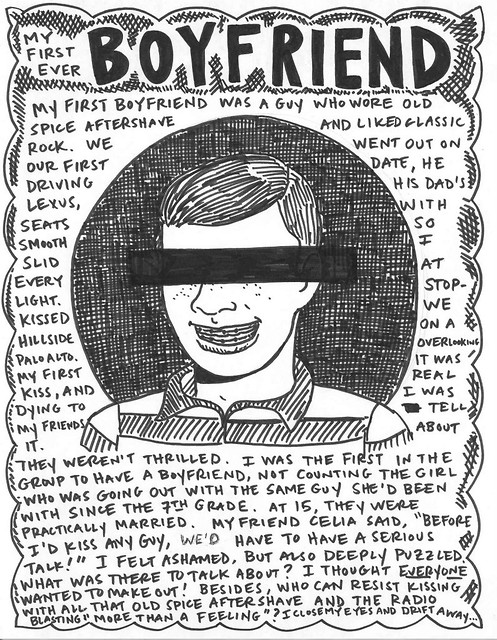 MY
FIRST
EVER
BOYFRIEND
MY FIRST BOYFRIEND WAS A GUY WHO WORE OLD
SPICE AFTERSHAVE AND LIKED CLASSIC
ROCK. WE WENT OUT ON
OUR FIRST DATE, HE
DRIVING HIS DAD'S
LEXUS, WITH
SEATS SO
SMOOTH I
SLID AT
EVERY STOP-
LIGHT. WE
KISSED ON A
HILLSIDE OVERLOOKING
PALO ALTO. IT WAS
MY FIRST REAL
KISS, AND I WAS
DYING TO TELL
MY FRIENDS ABOUT
IT.
THEY WEREN'T THRILLED. I WAS THE FIRST IN THE
GROUP TO HAVE A BOYFRIEND, NOT COUNTING THE GIRL
WHO WAS GOING OUT WITH THE SAME GUY SHE'D BEEN
WITH SINCE THE 7TH GRADE. AT 15, THEY WERE
PRACTICALLY MARRIED. MY FRIEND CELIA SAID, "BEFORE
I'D KISS ANY GUY, WE'D HAVE TO HAVE A SERIOUS
TALK!" I FELT ASHAMED, BUT ALSO DEEPLY PUZZLED.
WHAT WAS THERE TO TALK ABOUT? I THOUGHT EVERYONE
WANTED TO MAKE OUT! BESIDES, WHO CAN RESIST KISSING
WITH ALL THAT OLD SPICE AFTERSHAVE AND THE RADIO
BLASTING "MORE THAN A FEELING"? I CLOSE MY EYES AND DRIFT AWAY...